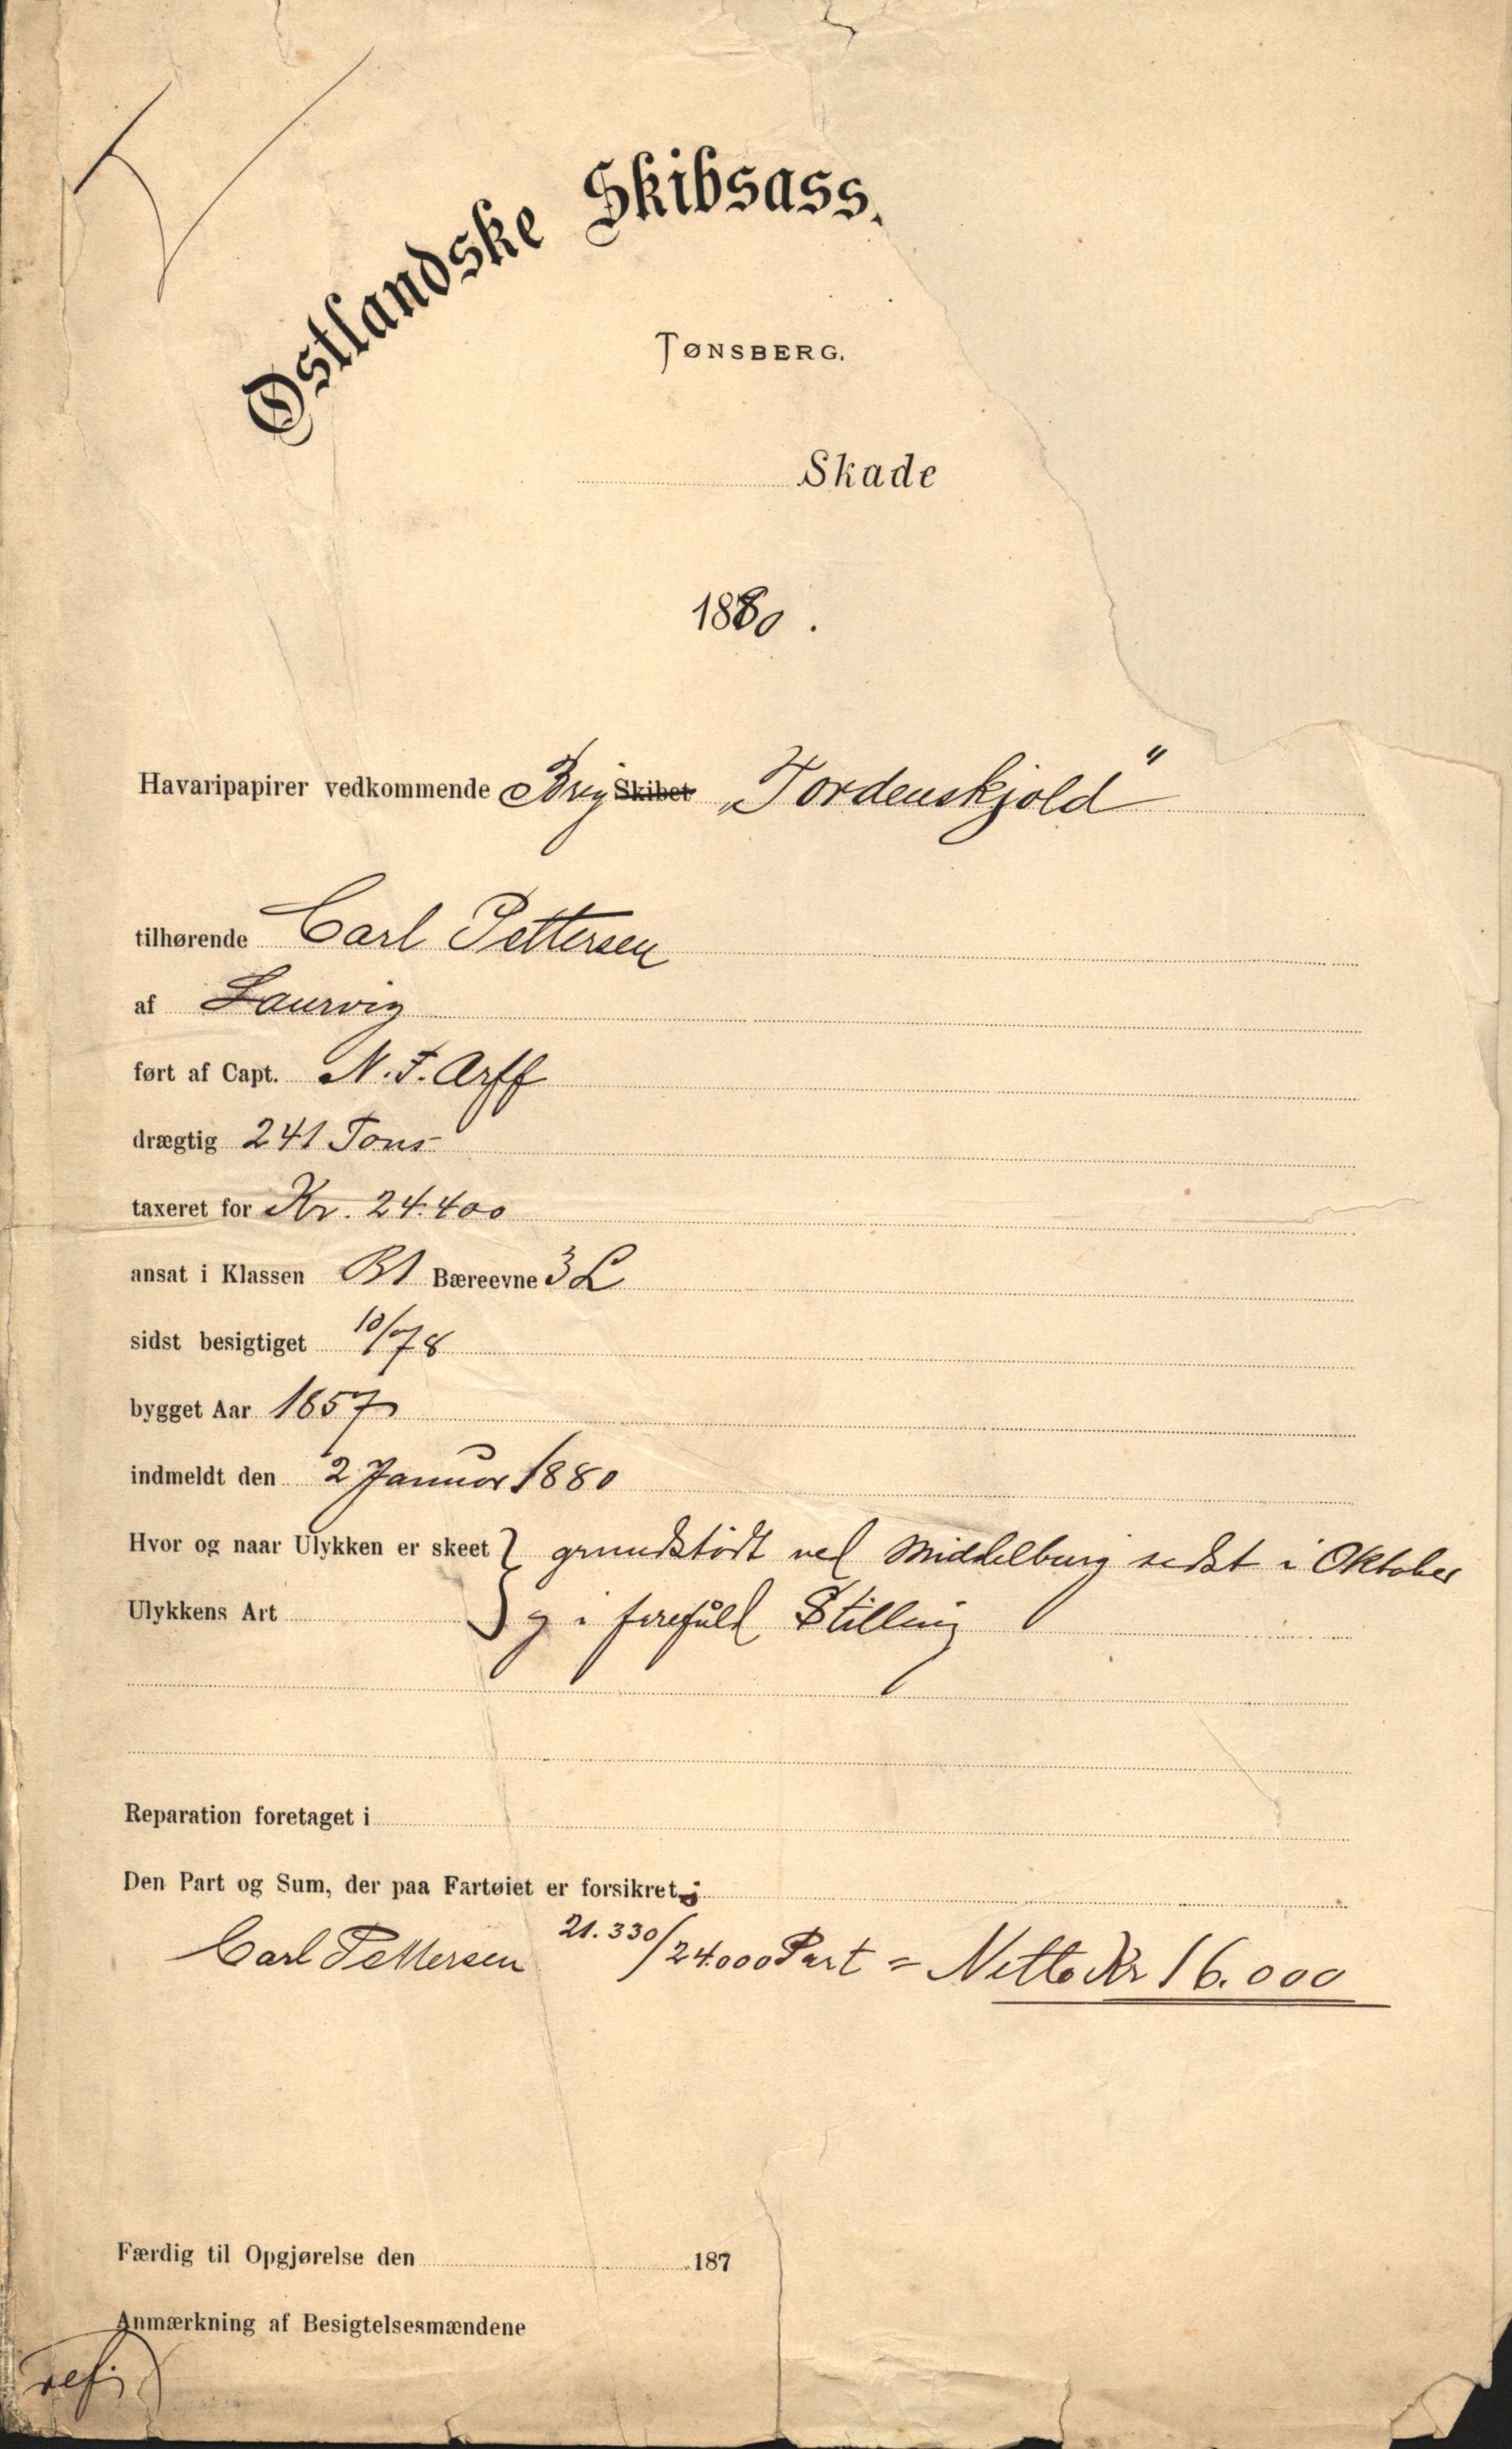 Østlandske Skibsass.
TØNSBERG.
Skade
1880.
Havaripapirer vedkommende Brig Skibet „Tordenskjold"
tilhørende Carl Pettersen
af Laurvig
ført af Capt. N. F. Arff
drægtig 241 Tons
taxeret for Kr. 24.400
ansat i Klassen B1 Bæreevne 3 L
sidst besigtiget 10/78
bygget Aar 1857
indmeldt den 2 Januar 1880
Hvor og naar Ulykken er skeet } grundstødt ved Middelburg sidst i Oktober
Ulykkens Art } i farefuld Stilling
Reparation foretaget i
Den Part og Sum, der paa Fartøiet er forsikret
Carl Pettersen 21.330/24.000 Part = Netto Kr 16.000
Færdig til Opgjørelse den 187
Anmærkning af Besigtelsesmændene